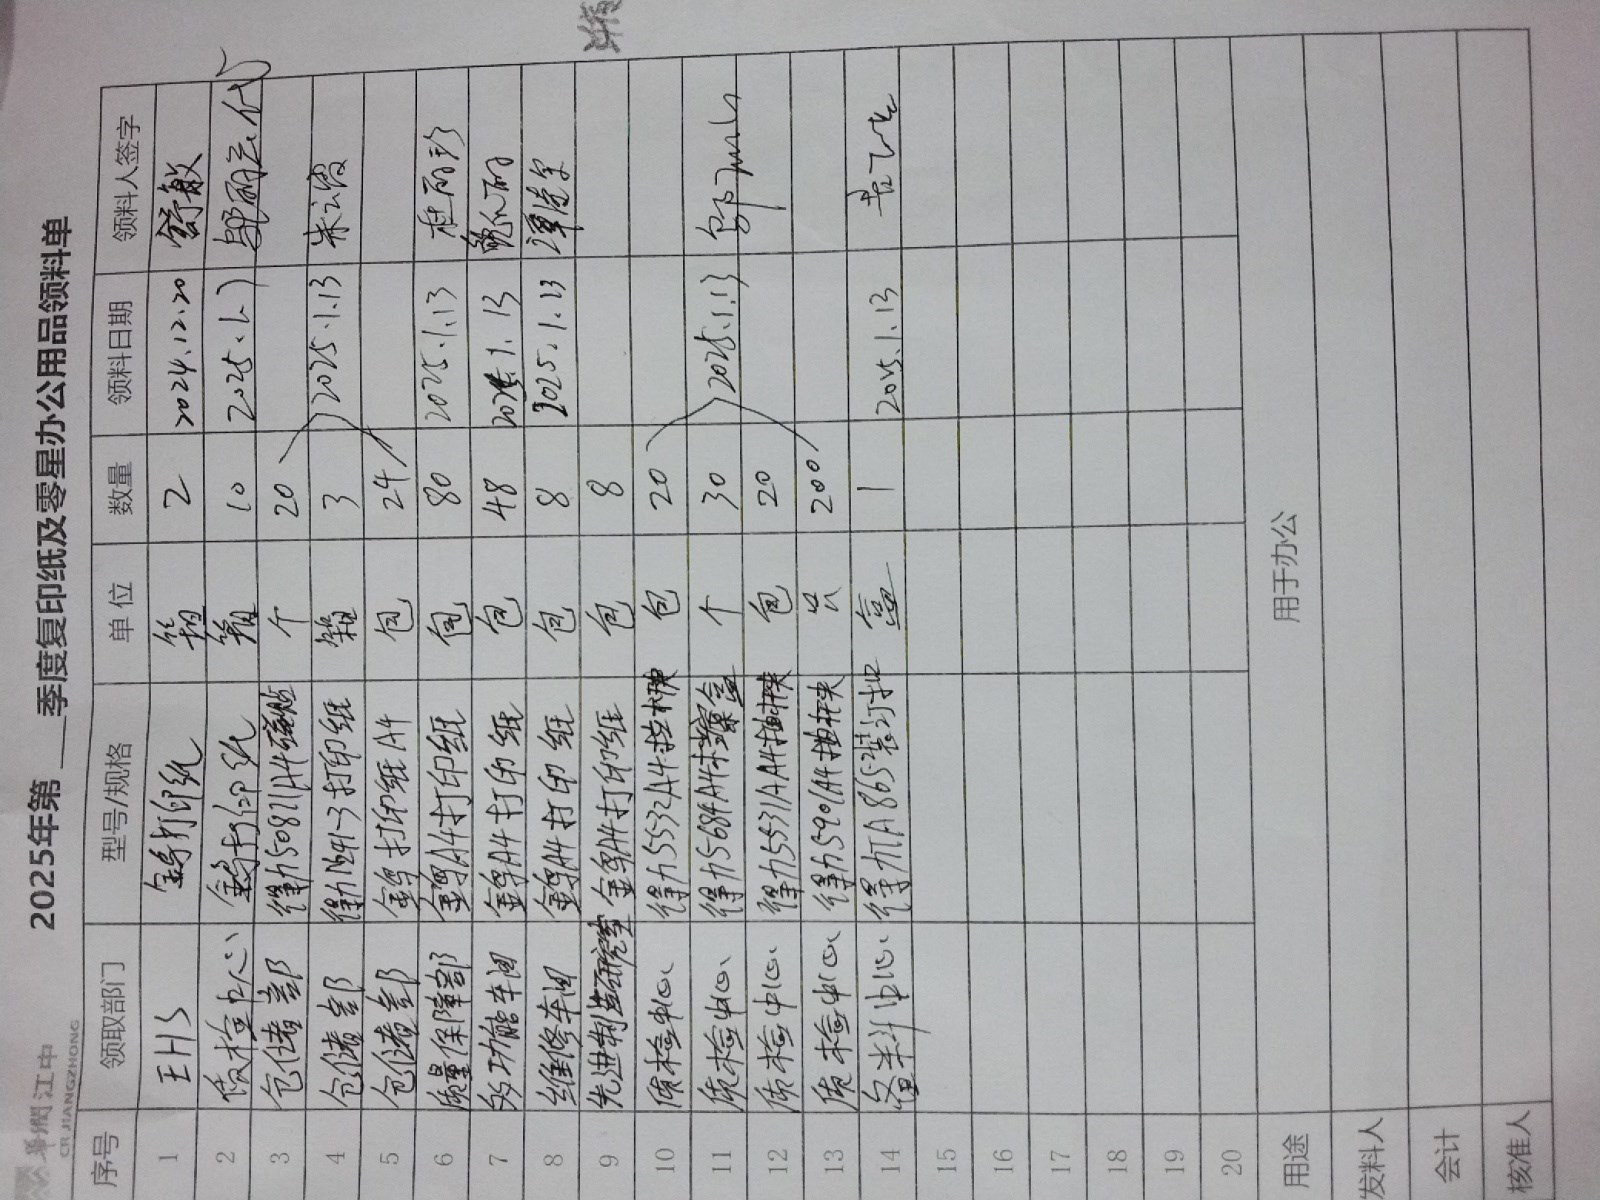 华润江中
CR JIANGZHONG
2025年第 季度复印纸及零星办公用品领料单
序号 领取部门 型号/规格 单位 数量 领料日期 领料人签字
1 EHS 金尊打印纸 箱 2 2024.12.20 舒敏
2 质检中心 金尊打印纸 箱 10 2025.1.7 代
3 仓储部 得力50821A4 个 20
4 仓储部 得力 -3打印纸 箱 3 2025.1.13
5 仓储部 金尊打印纸A4 包 24
6 质量保障部 金尊A4打印纸 包 80 2025.1.13
7 多功能车间 金尊A4打印纸 包 48 2025.1.13
8 维修车间 金尊A4打印纸 包 8 2025.1.13
9 先进制造研究室 金尊A4打印纸 包 8
10 质检中心 得力5532A4 包 20
11 质检中心 得力5684A4档案盒 个 30 2025.1.13
12 质检中心 得力5531A4抽杆夹 包 20
13 质检中心 得力5901A4抽杆夹 只 200
14 备料中心 得力TA865装订 盒 1 2025.1.13
15
16
17
18
19
20
用途 用于办公
发料人
会计
核准人